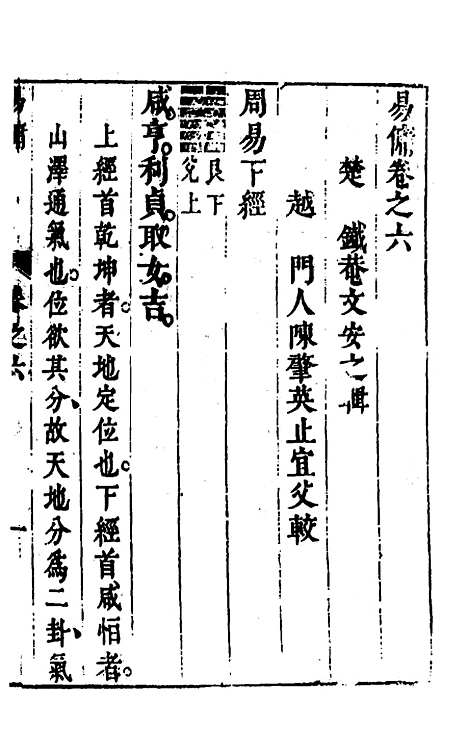 易傭卷之六
楚　鐵菴文安之輯
越　門人陳肇英止宜父較
周易下經
艮下
兌上
咸。亨。利貞。取女吉。
上經首乾坤者。天地定位也。下經首咸恒者。
山澤通氣也。位欲其分、故天地分爲二卦、氣
卷之六
一